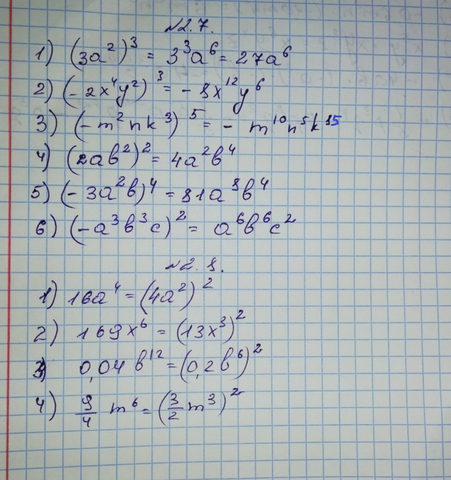 №2.7.
1) (3a²)³ = 3³a⁶ = 27a⁶
2) (-2x⁴y²)³ = -8x¹²y⁶
3) (-m²nk³)⁵ = - m¹⁰n⁵k¹⁵
4) (2ab²)² = 4a²b⁴
5) (-3a²b)⁴ = 81a⁸b⁴
6) (-a³b³c)² = a⁶b⁶c²
№2.8.
1) 16a⁴ = (4a²)²
2) 169x⁶ = (13x³)²
3) 0,04b¹² = (0,2b⁶)²
4) 9/4 m⁶ = (3/2 m³)²